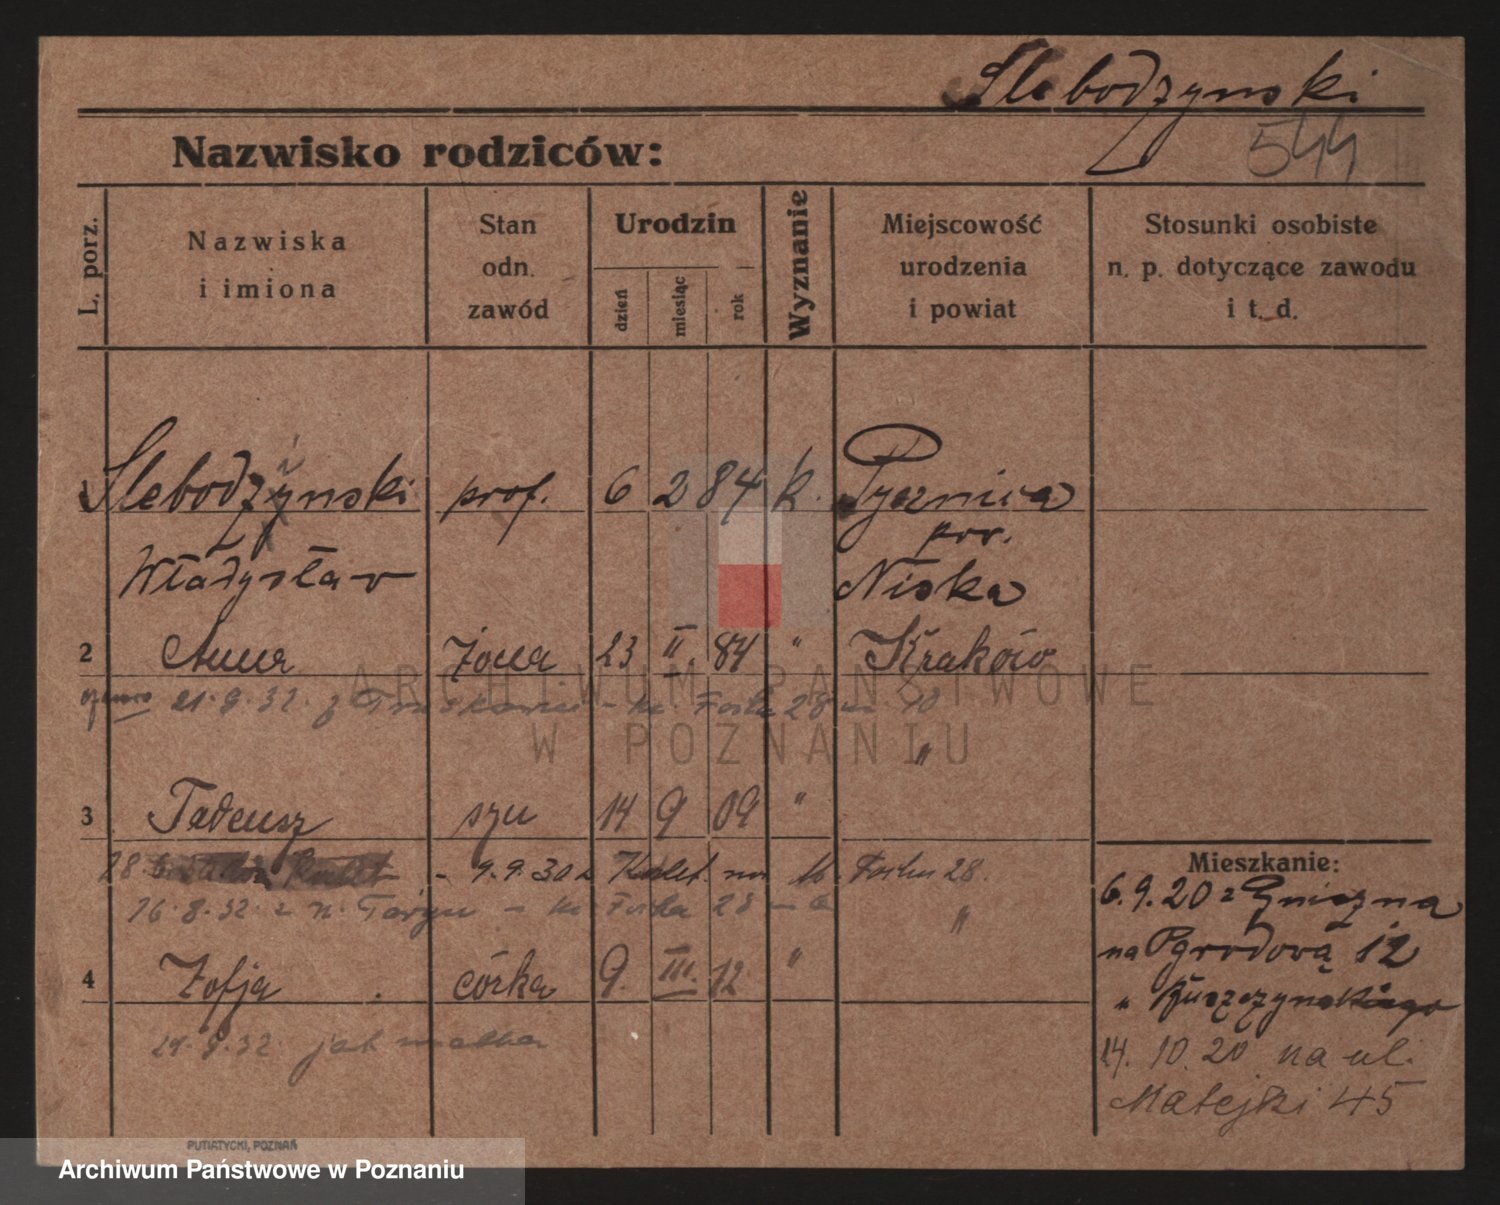 Slebodzynski
Nazwisko rodziców:
544
L. porz.
Nazwiska
i imiona
Stan
odn.
zawód
Urodzin
dzień
miesiąc
rok
Wyznanie
Miejscowość
urodzenia
i powiat
Stosunki osobiste
n. p. dotyczące zawodu
i t. d.
Slebodzynski prof. 6 2 84 k. Pysznica
pow.
Władysław Niska
2 Anna żona 23 II 84 " Kraków
21.9.32. z 28 m. 10
"
3 Tadeusz syn 14 9 09 "
28.6. - 9.9.30 z na 28.
16.8.32. z n. - 28 -
"
4 Zofja córka 9. III. 12 "
21.9.32. jak matka
Mieszkanie:
6.9.20 z Gniezna
na Pgrodową 12
"
14. 10. 20 na ul.
Matejki 45
PUTIATYCKI, POZNAŃ
ARCHIWUM PAŃSTWOWE
W POZNANIU
Archiwum Państwowe w Poznaniu